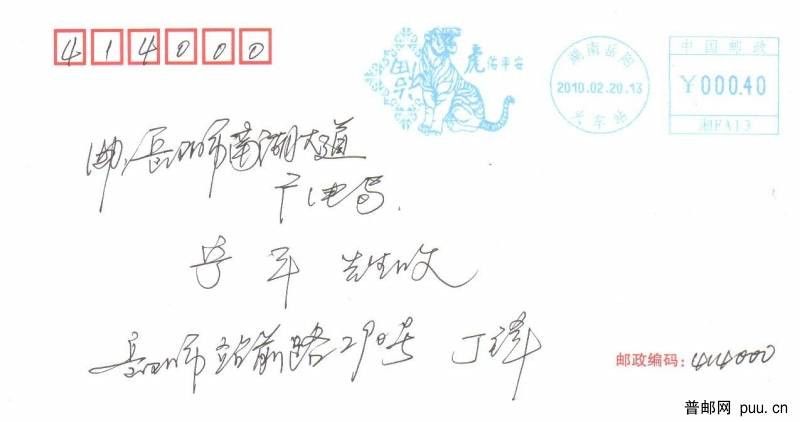 414000
虎佑平安
湖南岳阳
2010.02.20.13
火车站
中国邮政
¥000.40
湘FA13
岳阳市南湖大道
广电局
平 先生收
岳阳市站前路290号 丁
邮政编码:414000
普邮网 puu.cn